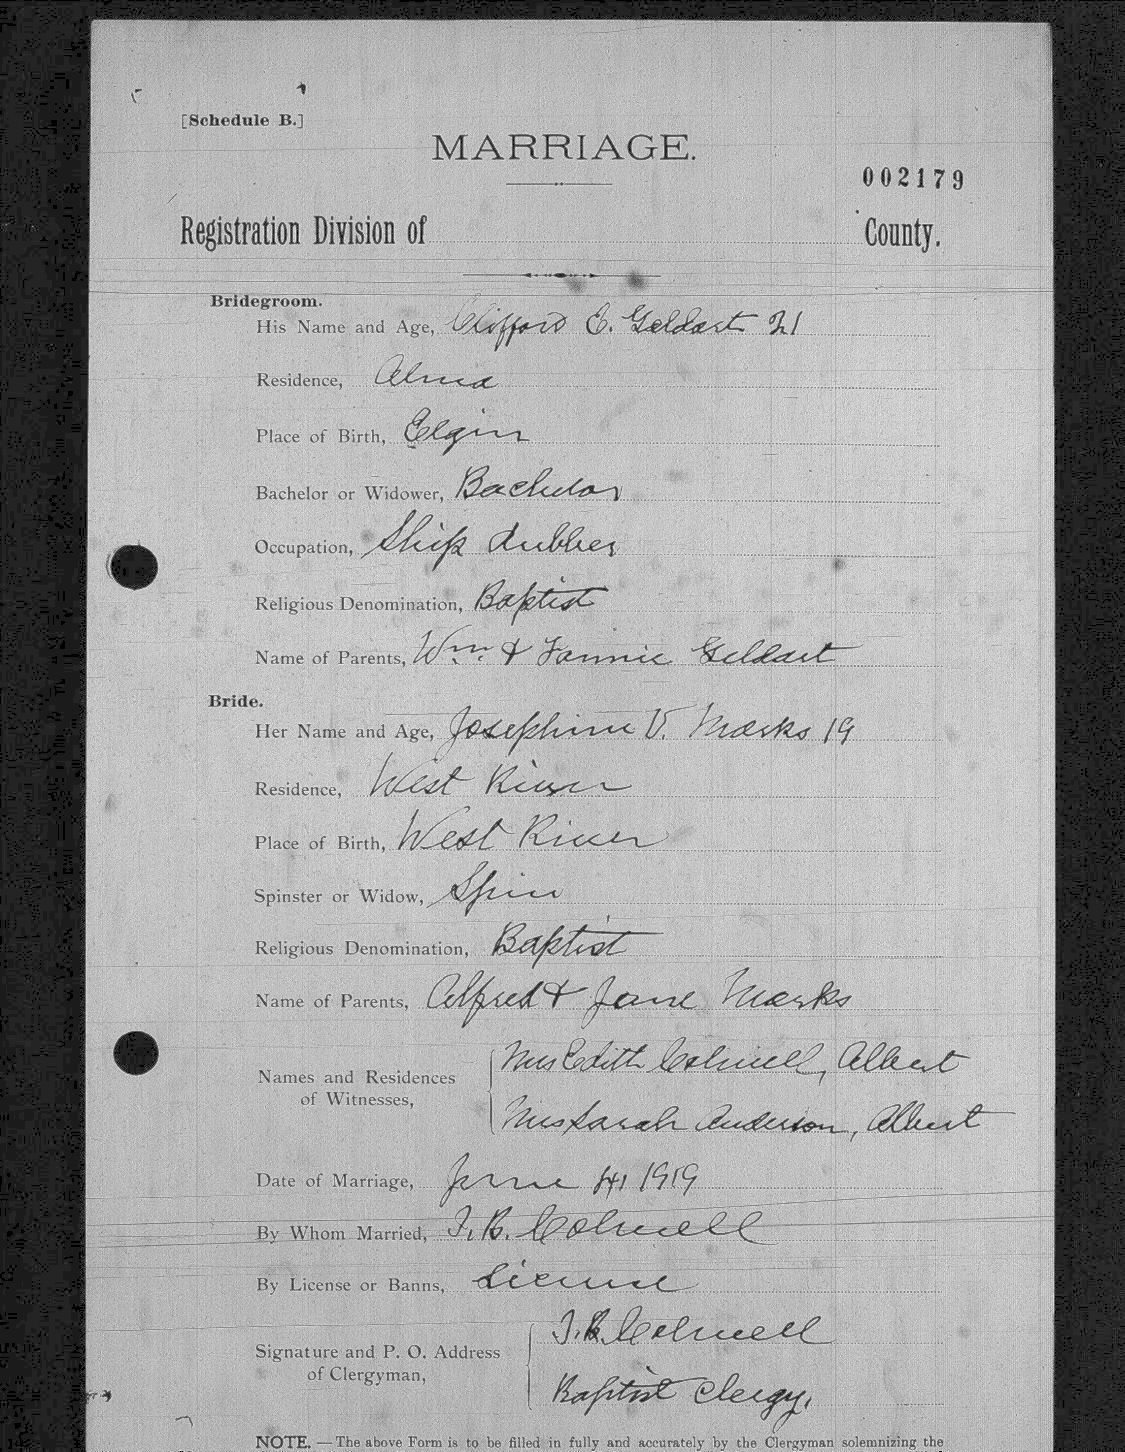 [Schedule B.]
MARRIAGE.
002179
Registration Division of County.
Bridegroom.
His Name and Age, Clifford E. Geldart 21
Residence, Alma
Place of Birth, Elgin
Bachelor or Widower, Bachelor
Occupation, Ship
Religious Denomination, Baptist
Name of Parents, Wm. & Fannie Geldart
Bride.
Her Name and Age, Josephine V. Marks 19
Residence, West River
Place of Birth, West River
Spinster or Widow, Spin
Religious Denomination, Baptist
Name of Parents, Alfred & Jane Marks
Names and Residences of Witnesses,
Mrs Edith Colwell, Albert
Mrs Sarah Anderson, Albert
Date of Marriage, June 4, 1919
By Whom Married, T. B. Colwell
By License or Banns, License
Signature and P. O. Address of Clergyman,
T. B. Colwell
Baptist Clergy.
NOTE. — The above Form is to be filled in fully and accurately by the Clergyman solemnizing the